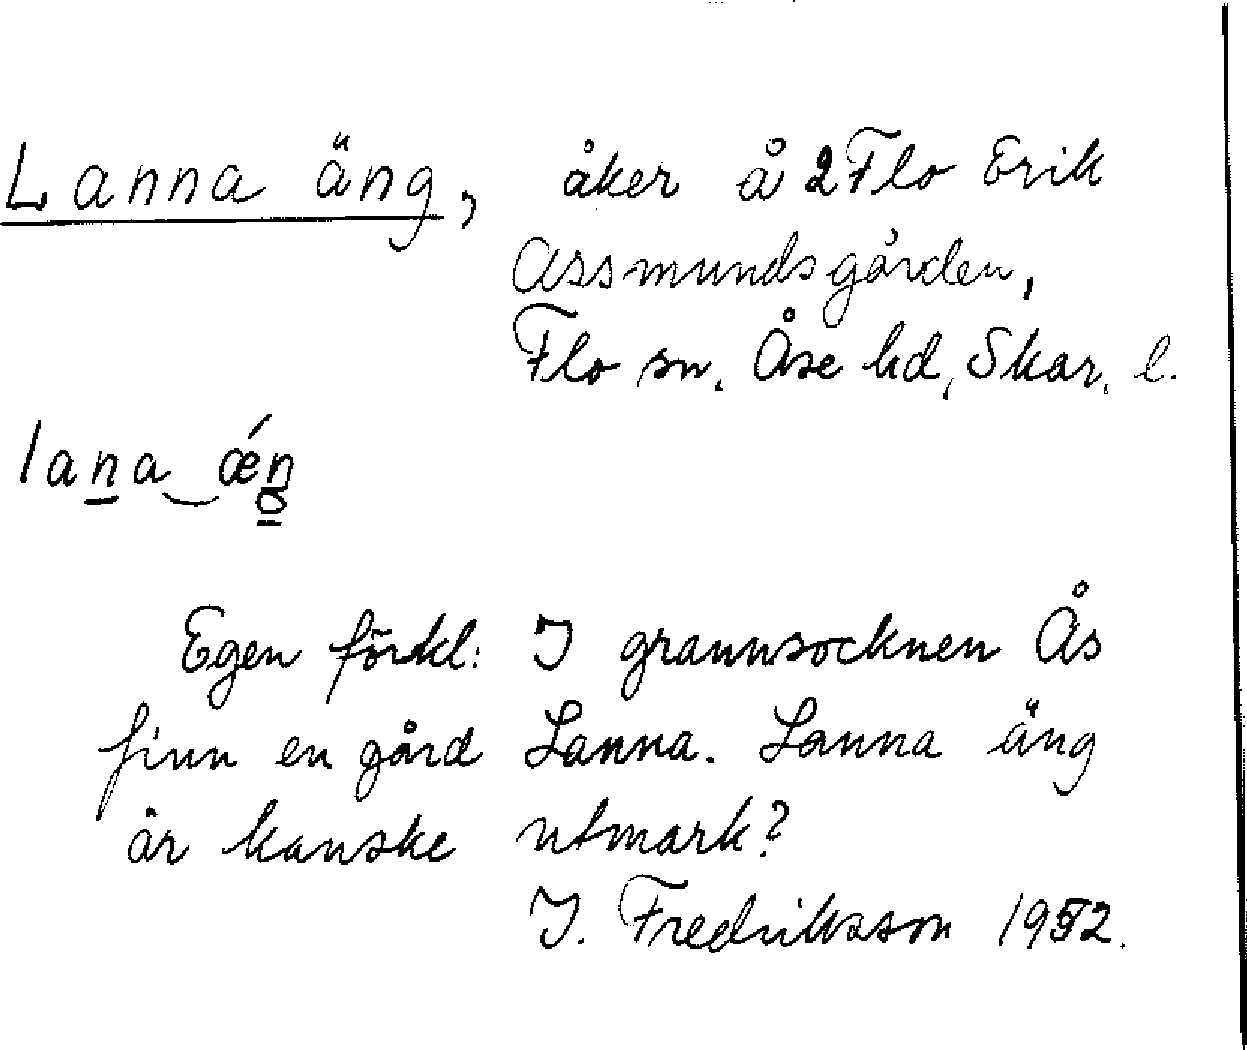 Lanna äng, åker å 2 Flo Erik
Assmundsgården,
Flo sn. Åse hd, Skar. l.
lana ǽn
Egen förkl: I grannsocknen Ås
finn en gård Lanna. Lanna äng
är kanske utmark?
I. Fredriksson 1952.